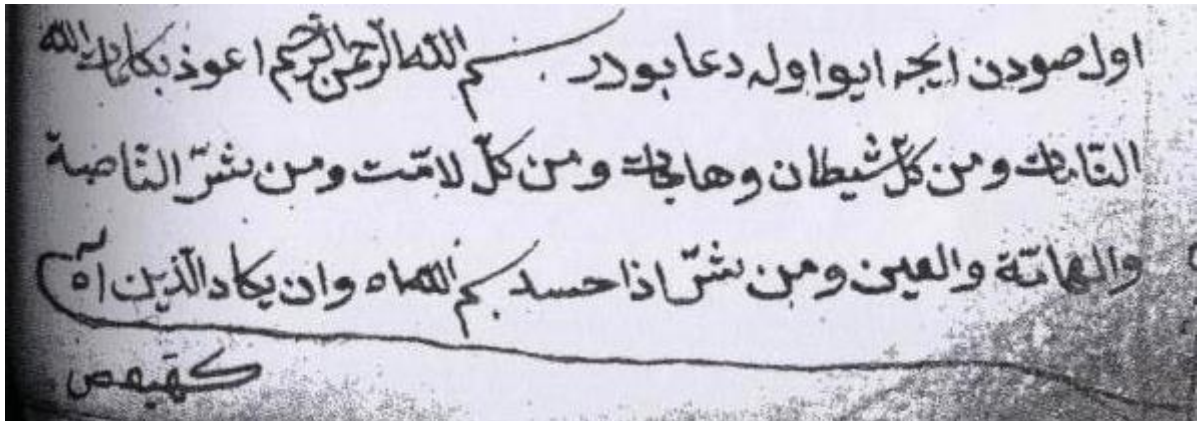 اول صودن ایچه ایو اوله دعا بودر بسم الله الرّحمن الرّحیم اعوذ بكلمات الله
التّامات ومن كلّ شیطان وهامات ومن كلّ لامّت ومن شرّ النّاصبة
والهامّة والعین ومن شرّ اذا حسد بسم الله اه وان یكاد الّذین آه
كهیعص